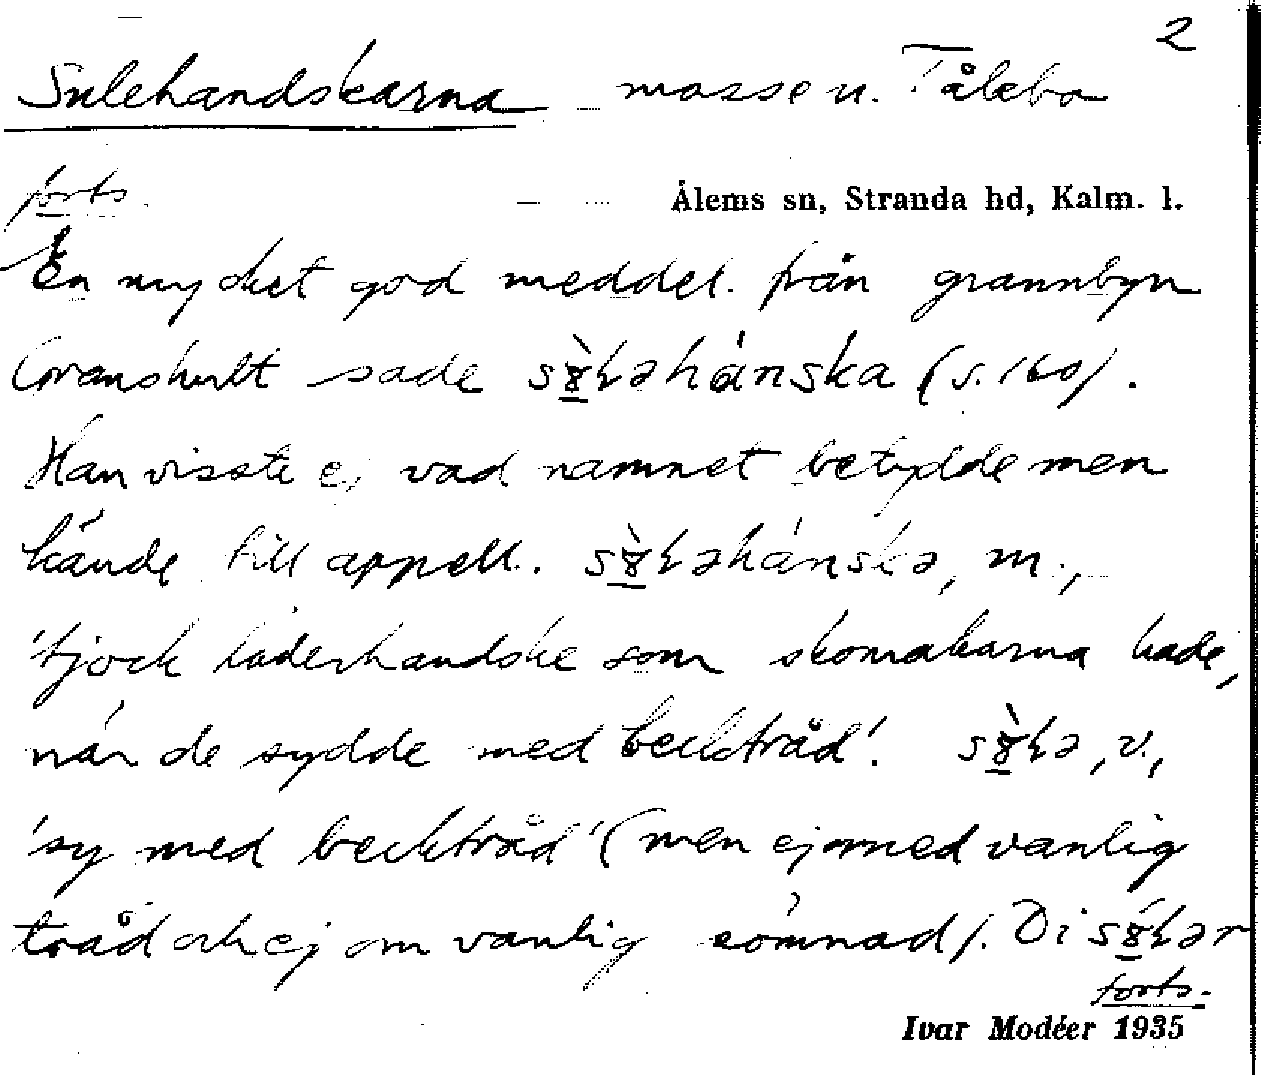 2
Sulehandskarna mosse u. Tålebo
forts.
Ålems sn, Stranda hd, Kalm. l.
En mycket god meddel. från grannbyn
Granshult sade (s. 160).
Han visste ej vad namnet betydde men
kände till appell. m.,
'tjock läderhandske som skomakarna hade,
när de sydde med becktråd'. v.,
'sy med becktråd' (men ej om med vanlig
tråd och ej om vanlig sömnad). Di
forts.
Ivar Modéer 1935